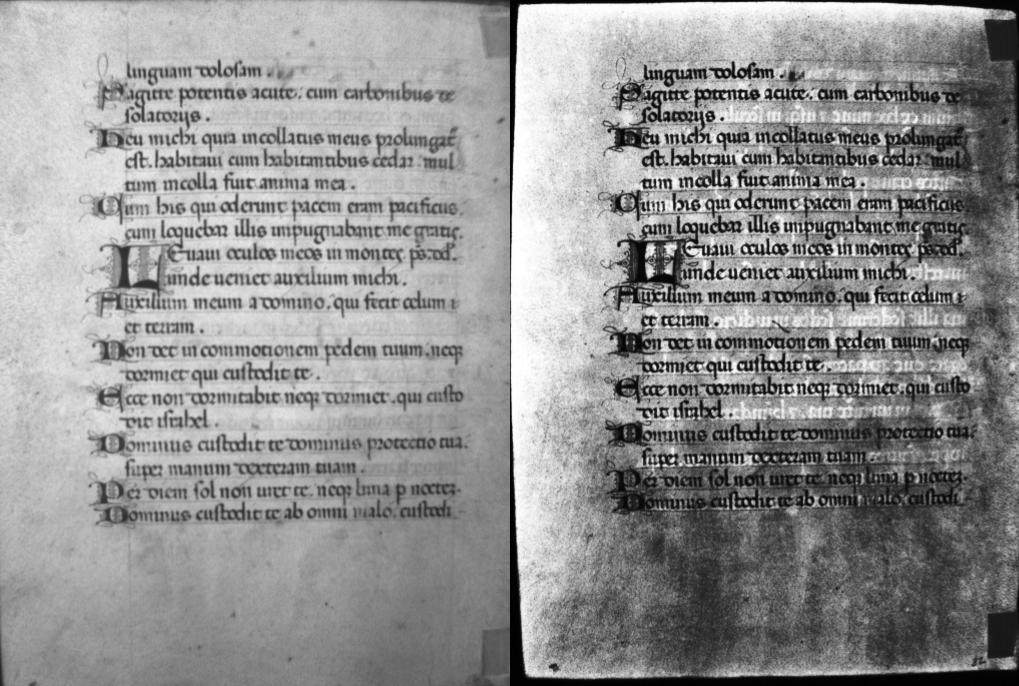 linguam dolosam .
Sagitte potentis acute . cum carbonibus de
solatorijs .
Heu michi quia incollatus meus prolungat᷒
est . habitaui cum habitantibus cedar . mul
tum incolla fuit anima mea .
Cum his qui oderunt pacem eram pacificus .
cum loquebar illis impugnabant me gratis .
Leuaui oculos meos in montes ps. dd.
unde ueniet auxilium michi .
Auxilium meum a domino . qui fecit celum ⁊
et terram .
Non det in commotionem pedem tuum . neqꝫ
dormiet qui custodit te .
Ecce non dormitabit neqꝫ dormiet . qui custo
dit israhel .
Dominus custodit te dominus protectio tua .
super manum dexteram tuam .
Per diem sol non uret te . neqꝫ luna p noctez .
Dominus custodit te ab omni malo . custodi
linguam dolosam .
Sagitte potentis acute . cum carbonibus de
solatorijs .
Heu michi quia incollatus meus prolungat᷒
est . habitaui cum habitantibus cedar . mul
tum incolla fuit anima mea .
Cum his qui oderunt pacem eram pacificus .
cum loquebar illis impugnabant me gratis .
Leuaui oculos meos in montes ps. dd.
unde ueniet auxilium michi .
Auxilium meum a domino . qui fecit celum ⁊
et terram .
Non det in commotionem pedem tuum . neqꝫ
dormiet qui custodit te .
Ecce non dormitabit neqꝫ dormiet . qui custo
dit israhel .
Dominus custodit te dominus protectio tua .
super manum dexteram tuam
Per diem sol non uret te . neqꝫ luna p noctez .
Dominus custodit te ab omni malo . custodi